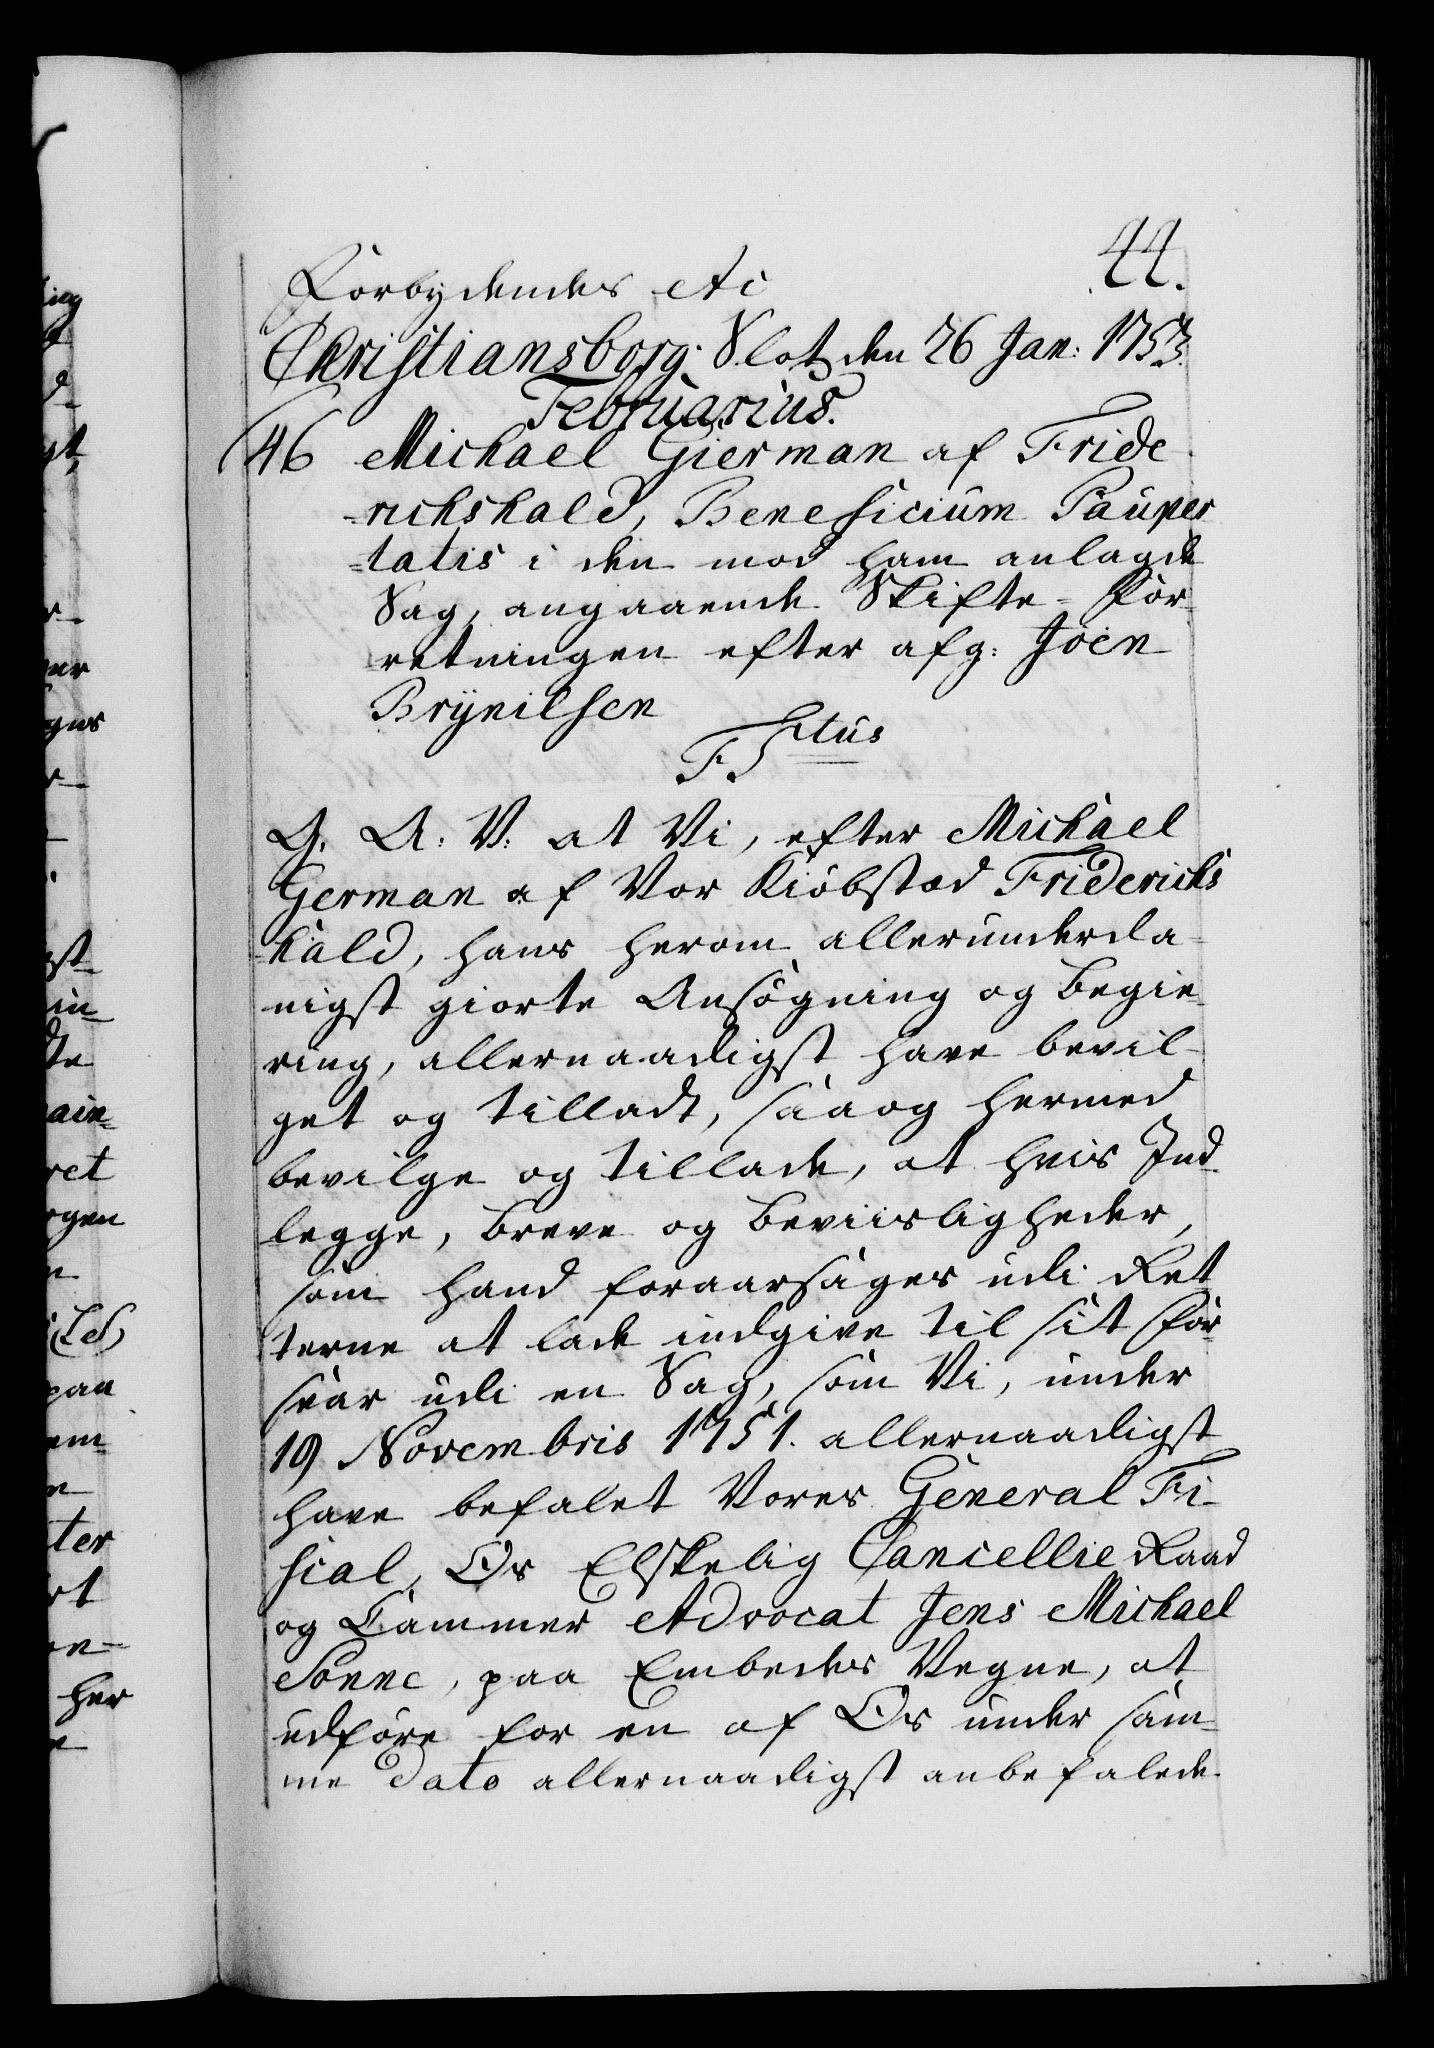 44.
Forbydendes etc
Christiansborg Slot den 26 Jan: 1753.
Februarius.
46 Michael Gierman af Fride
richshald, Beneficium Pauper
=tatis i den mod ham anlagde
Sag, angaaende Skifte-For
retningen efter afg: Joen
Brynilsen
F. 5tus
G. A: V: at Vi, efter Michael
German af Vor Kiöbstæd Friderichs
hald, hans herom allerunderda-
nigst giorte Ansögning og Begie-
ring, allernaadigst have bevil-
get og tilladt, saa og hermed
bevilge og tillade, at hvis Ind
legge, breve og beviisligheder,
som hand foraarsages udi Ret
terne at lade indgive til sit For-
svar udi en Sag, som Vi, under
19 Novembris 1751. allernaadigst
have befalet Vores General Fi-
scal, Os Elskelig Cancellie Raad
og Cammer Advocat Jens Michael
Sonne, paa Embedes Vegne, at
udföre for en af Os under sam-
me Dato allernaadigst anbefalede